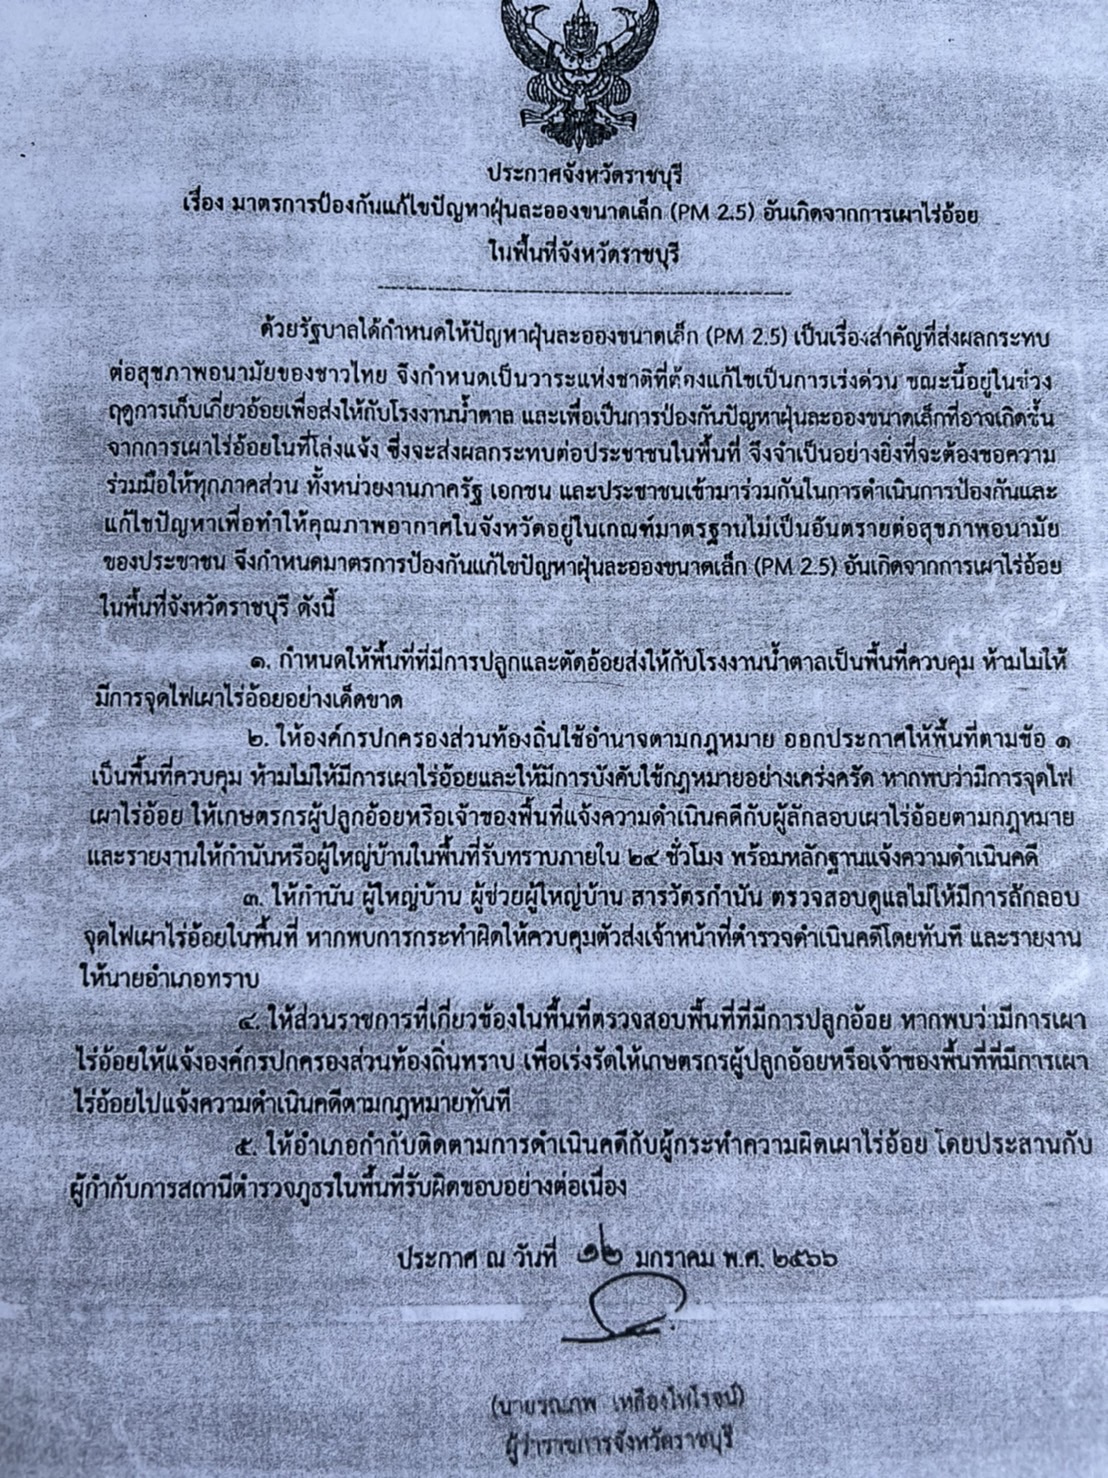 ประกาศจังหวัดราชบุรี
เรื่อง มาตรการป้องกันแก้ไขปัญหาฝุ่นละอองขนาดเล็ก (PM 2.5) อันเกิดจากการเผาไร่อ้อย
ในพื้นที่จังหวัดราชบุรี
ด้วยรัฐบาลได้กำหนดให้ปัญหาฝุ่นละอองขนาดเล็ก (PM 2.5) เป็นเรื่องสำคัญที่ส่งผลกระทบ
ต่อสุขภาพอนามัยของชาวไทย จึงกำหนดเป็นวาระแห่งชาติที่ต้องแก้ไขเป็นการเร่งด่วน ขณะนี้อยู่ในช่วง
ฤดูการเก็บเกี่ยวอ้อยเพื่อส่งให้กับโรงงานน้ำตาล และเพื่อเป็นการป้องกันปัญหาฝุ่นละอองขนาดเล็กที่อาจเกิดขึ้น
จากการเผาไร่อ้อยในที่โล่งแจ้ง ซึ่งจะส่งผลกระทบต่อประชาชนในพื้นที่ จึงจำเป็นอย่างยิ่งที่จะต้องขอความ
ร่วมมือให้ทุกภาคส่วน ทั้งหน่วยงานภาครัฐ เอกชน และประชาชนเข้ามาร่วมกันในการดำเนินการป้องกันและ
แก้ไขปัญหาเพื่อทำให้คุณภาพอากาศในจังหวัดอยู่ในเกณฑ์มาตรฐานไม่เป็นอันตรายต่อสุขภาพอนามัย
ของประชาชน จึงกำหนดมาตรการป้องกันแก้ไขปัญหาฝุ่นละอองขนาดเล็ก (PM 2.5) อันเกิดจากการเผาไร่อ้อย
ในพื้นที่จังหวัดราชบุรี ดังนี้
๑. กำหนดให้พื้นที่ที่มีการปลูกและตัดอ้อยส่งให้กับโรงงานน้ำตาลเป็นพื้นที่ควบคุม ห้ามไม่ให้
มีการจุดไฟเผาไร่อ้อยอย่างเด็ดขาด
๒. ให้องค์กรปกครองส่วนท้องถิ่นใช้อำนาจตามกฎหมาย ออกประกาศให้พื้นที่ตามข้อ ๑
เป็นพื้นที่ควบคุม ห้ามไม่ให้มีการเผาไร่อ้อยและให้มีการบังคับใช้กฎหมายอย่างเคร่งครัด หากพบว่ามีการจุดไฟ
เผาไร่อ้อย ให้เกษตรกรผู้ปลูกอ้อยหรือเจ้าของพื้นที่แจ้งความดำเนินคดีกับผู้ลักลอบเผาไร่อ้อยตามกฎหมาย
และรายงานให้กำนันหรือผู้ใหญ่บ้านในพื้นที่รับทราบภายใน ๒๔ ชั่วโมง พร้อมหลักฐานแจ้งความดำเนินคดี
๓. ให้กำนัน ผู้ใหญ่บ้าน ผู้ช่วยผู้ใหญ่บ้าน สารวัตรกำนัน ตรวจสอบดูแลไม่ให้มีการลักลอบ
จุดไฟเผาไร่อ้อยในพื้นที่ หากพบการกระทำผิดให้ควบคุมตัวส่งเจ้าหน้าที่ตำรวจดำเนินคดีโดยทันที และรายงาน
ให้นายอำเภอทราบ
๔. ให้ส่วนราชการที่เกี่ยวข้องในพื้นที่ตรวจสอบพื้นที่ที่มีการปลูกอ้อย หากพบว่ามีการเผา
ไร่อ้อยให้แจ้งองค์กรปกครองส่วนท้องถิ่นทราบ เพื่อเร่งรัดให้เกษตรกรผู้ปลูกอ้อยหรือเจ้าของพื้นที่ที่มีการเผา
ไร่อ้อยไปแจ้งความดำเนินคดีตามกฎหมายทันที
๕. ให้อำเภอกำกับติดตามการดำเนินคดีกับผู้กระทำความผิดเผาไร่อ้อย โดยประสานกับ
ผู้กำกับการสถานีตำรวจภูธรในพื้นที่รับผิดชอบอย่างต่อเนื่อง
ประกาศ ณ วันที่ ๑๒ มกราคม พ.ศ. ๒๕๖๖
(นายรณภพ เหลืองไพโรจน์)
ผู้ว่าราชการจังหวัดราชบุรี